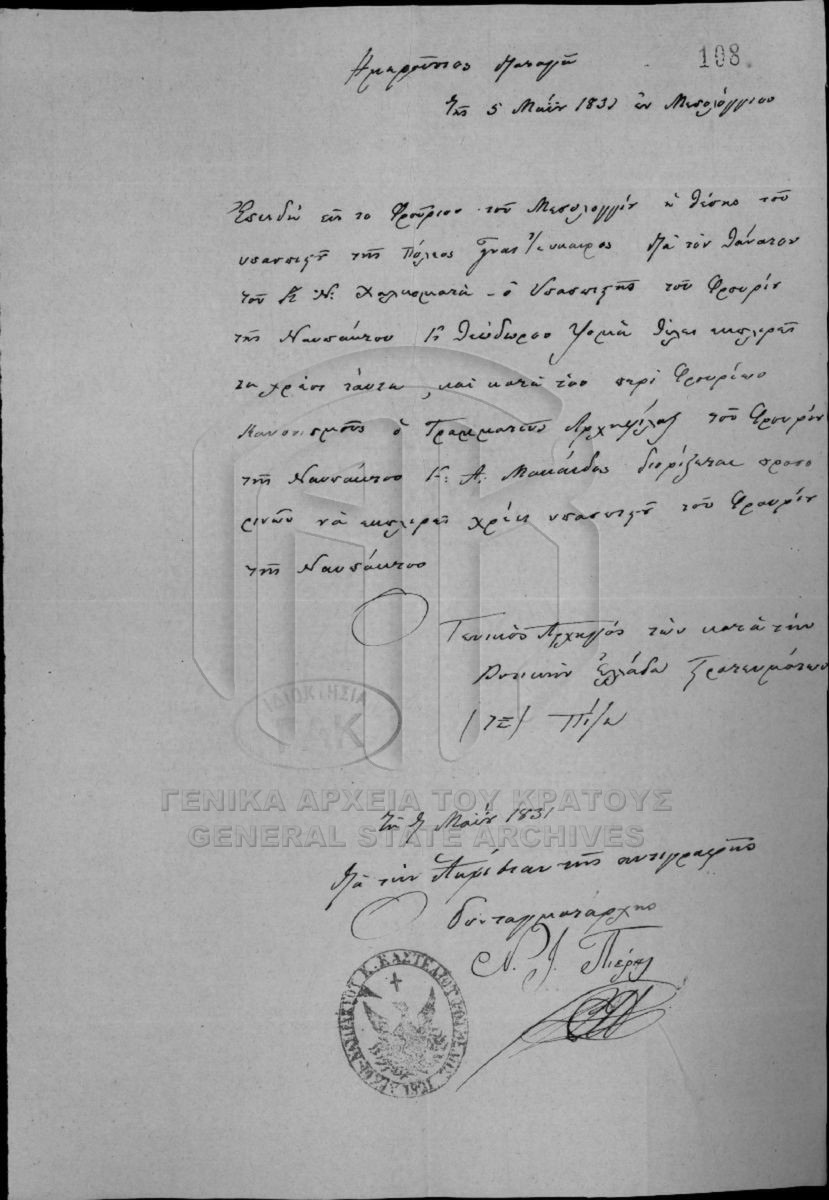 108
Ημερούσιος διαταγή
Της 5 Μαΐου 1831 εν Μεσολόγγιου
Επειδή εις το Φρούριον του Μεσολογγίου η θέσις του
υπασπιστού της Πόλεος είναι εύκαιρος διά τον θάνατον
του Κ Ν. Χαλκιοματά – ο Υπασπιστής του Φρουρίου
της Ναυπάκτου Κ Θεόδωρος θέλει εκπληρεί
τα χρέει ταύτα, και κατά τον περί Φρουρίων
Κανονισμόν ο Γραμματεύς Αρχιφύλαξ του Φρουρίου
της Ναυπάκτου Κ: Α. διορίζεται προσο
ρινώς να εκπληρεί χρέει υπασπιστού του Φρουρίου
της Ναυπάκτου
Ο Γενικός Αρχηγός των κατά την
Δυτικήν Ελλάδα Στρατευμάτων
(ΤΣ) Πίζα
ΙΔΙΟΚΤΗΣΙΑ
ΓΑΚ
ΓΕΝΙΚΑ ΑΡΧΕΙΑ ΤΟΥ ΚΡΑΤΟΥΣ
GENERAL STATE ARCHIVES
τη 7 Μαΐου 1831
διά την Ακρίβειαν της αντιγραφής
Ο Συνταγματάρχης
Ν. Ι. Πιέρης
ΝΑΥΠΑΚΤΟΥ Κ. ΚΑΣΤΕΛΙΟΥ